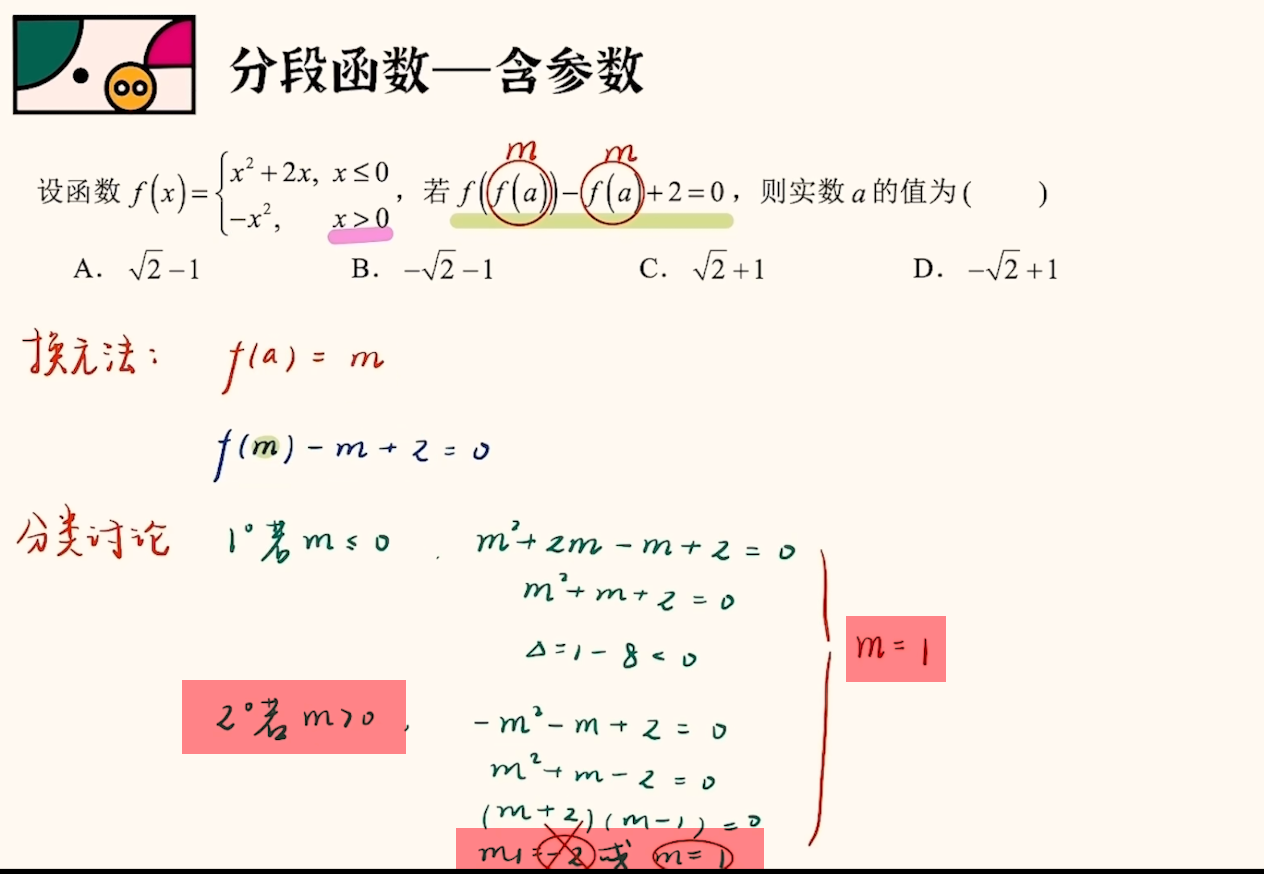 分段函数—含参数
m m
设函数 f(x)={x²+2x, x≤0
-x², x>0 ，若 f(f(a))-f(a)+2=0，则实数 a 的值为( )
A. √2-1 B. -√2-1 C. √2+1 D. -√2+1
换元法: f(a) = m
f(m) - m + 2 = 0
分类讨论 1°若 m ≤ 0 . m²+2m-m+2=0
m²+m+2=0
Δ=1-8<0
m=1
2°若 m>0, -m²-m+2=0
m²+m-2=0
(m+2)(m-1)=0
m1=-2 或 m=1